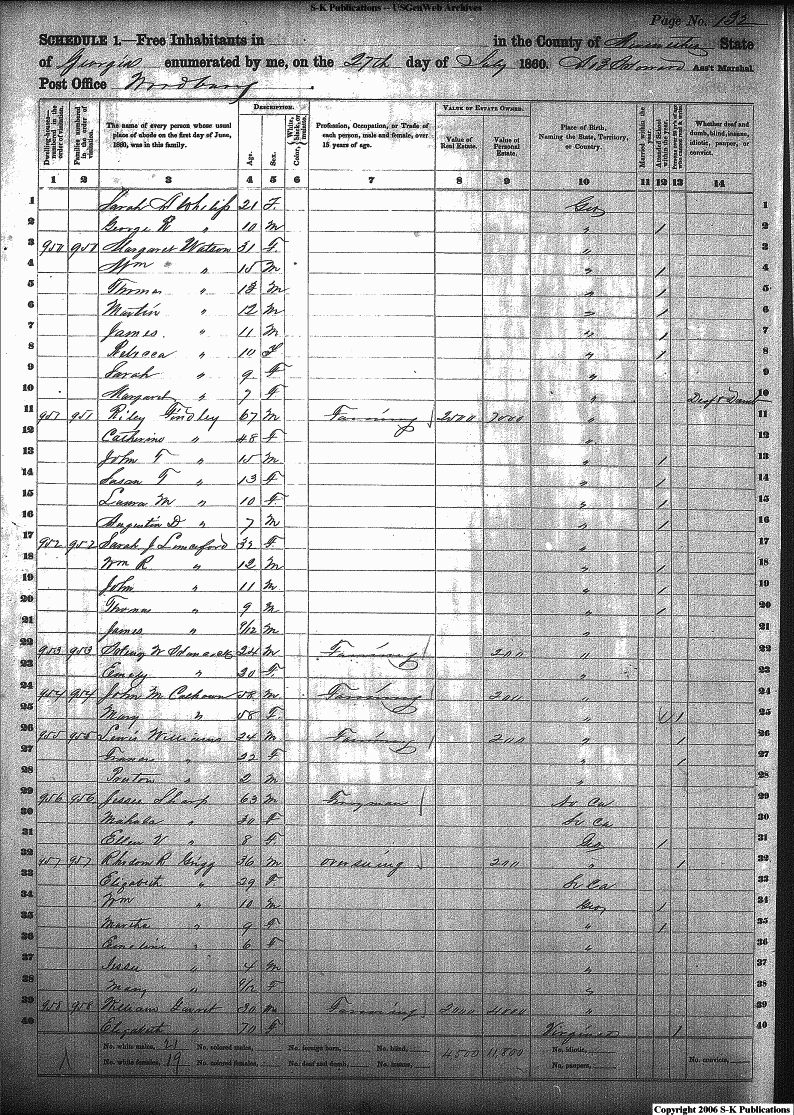 S-K Publications -- USGenWeb Archives
Page No. 132
SCHEDULE 1.—Free Inhabitants in in the County of State
of Georgia enumerated by me, on the 27th day of July 1860. Ass't Marshal
Post Office Woodbury.
DESCRIPTION. VALUE OF ESTATE OWNED.
Dwelling-houses— numbered in the order of visitation.
Families numbered in the order of visitation.
The name of every person whose usual place of abode on the first day of June, 1860, was in this family.
Age.
Sex.
Color, White, black, or mulatto.
Profession, Occupation, or Trade of each person, male and female, over 15 years of age.
Value of Real Estate.
Value of Personal Estate.
Place of Birth, Naming the State, Territory, or Country.
Married within the year.
Attended School within the year.
Whether deaf and dumb, blind, insane, idiotic, pauper, or convict.
1 2 3 4 5 6 7 8 9 10 11 12 13 14
1 Sarah 21 F Geo 1
2 George R " 10 M " 1 2
3 950 950 Margaret Watson 31 F " 3
4 Wm " 15 M " 1 4
5 Thomas " 13 M " 1 5
6 Martin " 12 M " 1 6
7 James " 11 M " 1 7
8 Rebecca " 10 F " 1 8
9 Sarah " 9 F " 9
10 Margaret " 7 F " Deaf & Dumb 10
11 951 951 Riley Findley 67 M Farming 2500 7000 " 11
12 Catherine " 48 F " 12
13 John T " 15 M " 1 13
14 Susan T " 13 F " 1 14
15 Laura M " 10 F " 1 15
16 Augustin D " 7 M " 1 16
17 952 952 Sarah J 32 F " 17
18 Wm R " 12 M " 1 18
19 John " 11 M " 1 19
20 Thomas " 9 M " 1 20
21 James " 9/12 M " 21
22 953 953 24 M Farming 200 " 22
23 Emely " 20 F " 23
24 954 954 John M Calhoun 58 M Farming 200 " 24
25 Mary " 58 F " 1 25
26 955 955 Lewis Williams 24 M Farming 200 " 1 26
27 Frances " 22 F " 1 27
28 " 2 M " 28
29 956 956 Jessee Sharp 63 M Ferryman No Ca 29
30 Mahala " 30 F So Ca 30
31 Ellen V " 8 F Geo 1 31
32 957 957 R Grigg 36 M overseeing 200 " 1 32
33 Elizabeth " 29 F So Ca 33
34 Wm " 10 M Geo 1 34
35 Martha " 9 F " 1 35
36 Emeline " 6 F " 36
37 Jessee " 4 M " 37
38 Mary " 9/12 F " 38
39 958 958 William Garret 30 M Farming 2000 4000 " 39
40 Elizabeth " 70 F Virginia 1 40
No. white males, 21 No. colored males, No. foreign born, No. blind, 4500 11,800 No. idiotic,
No. white females, 19 No. colored females, No. deaf and dumb, No. insane, No. paupers, No. convicts,
Copyright 2006 S-K Publications